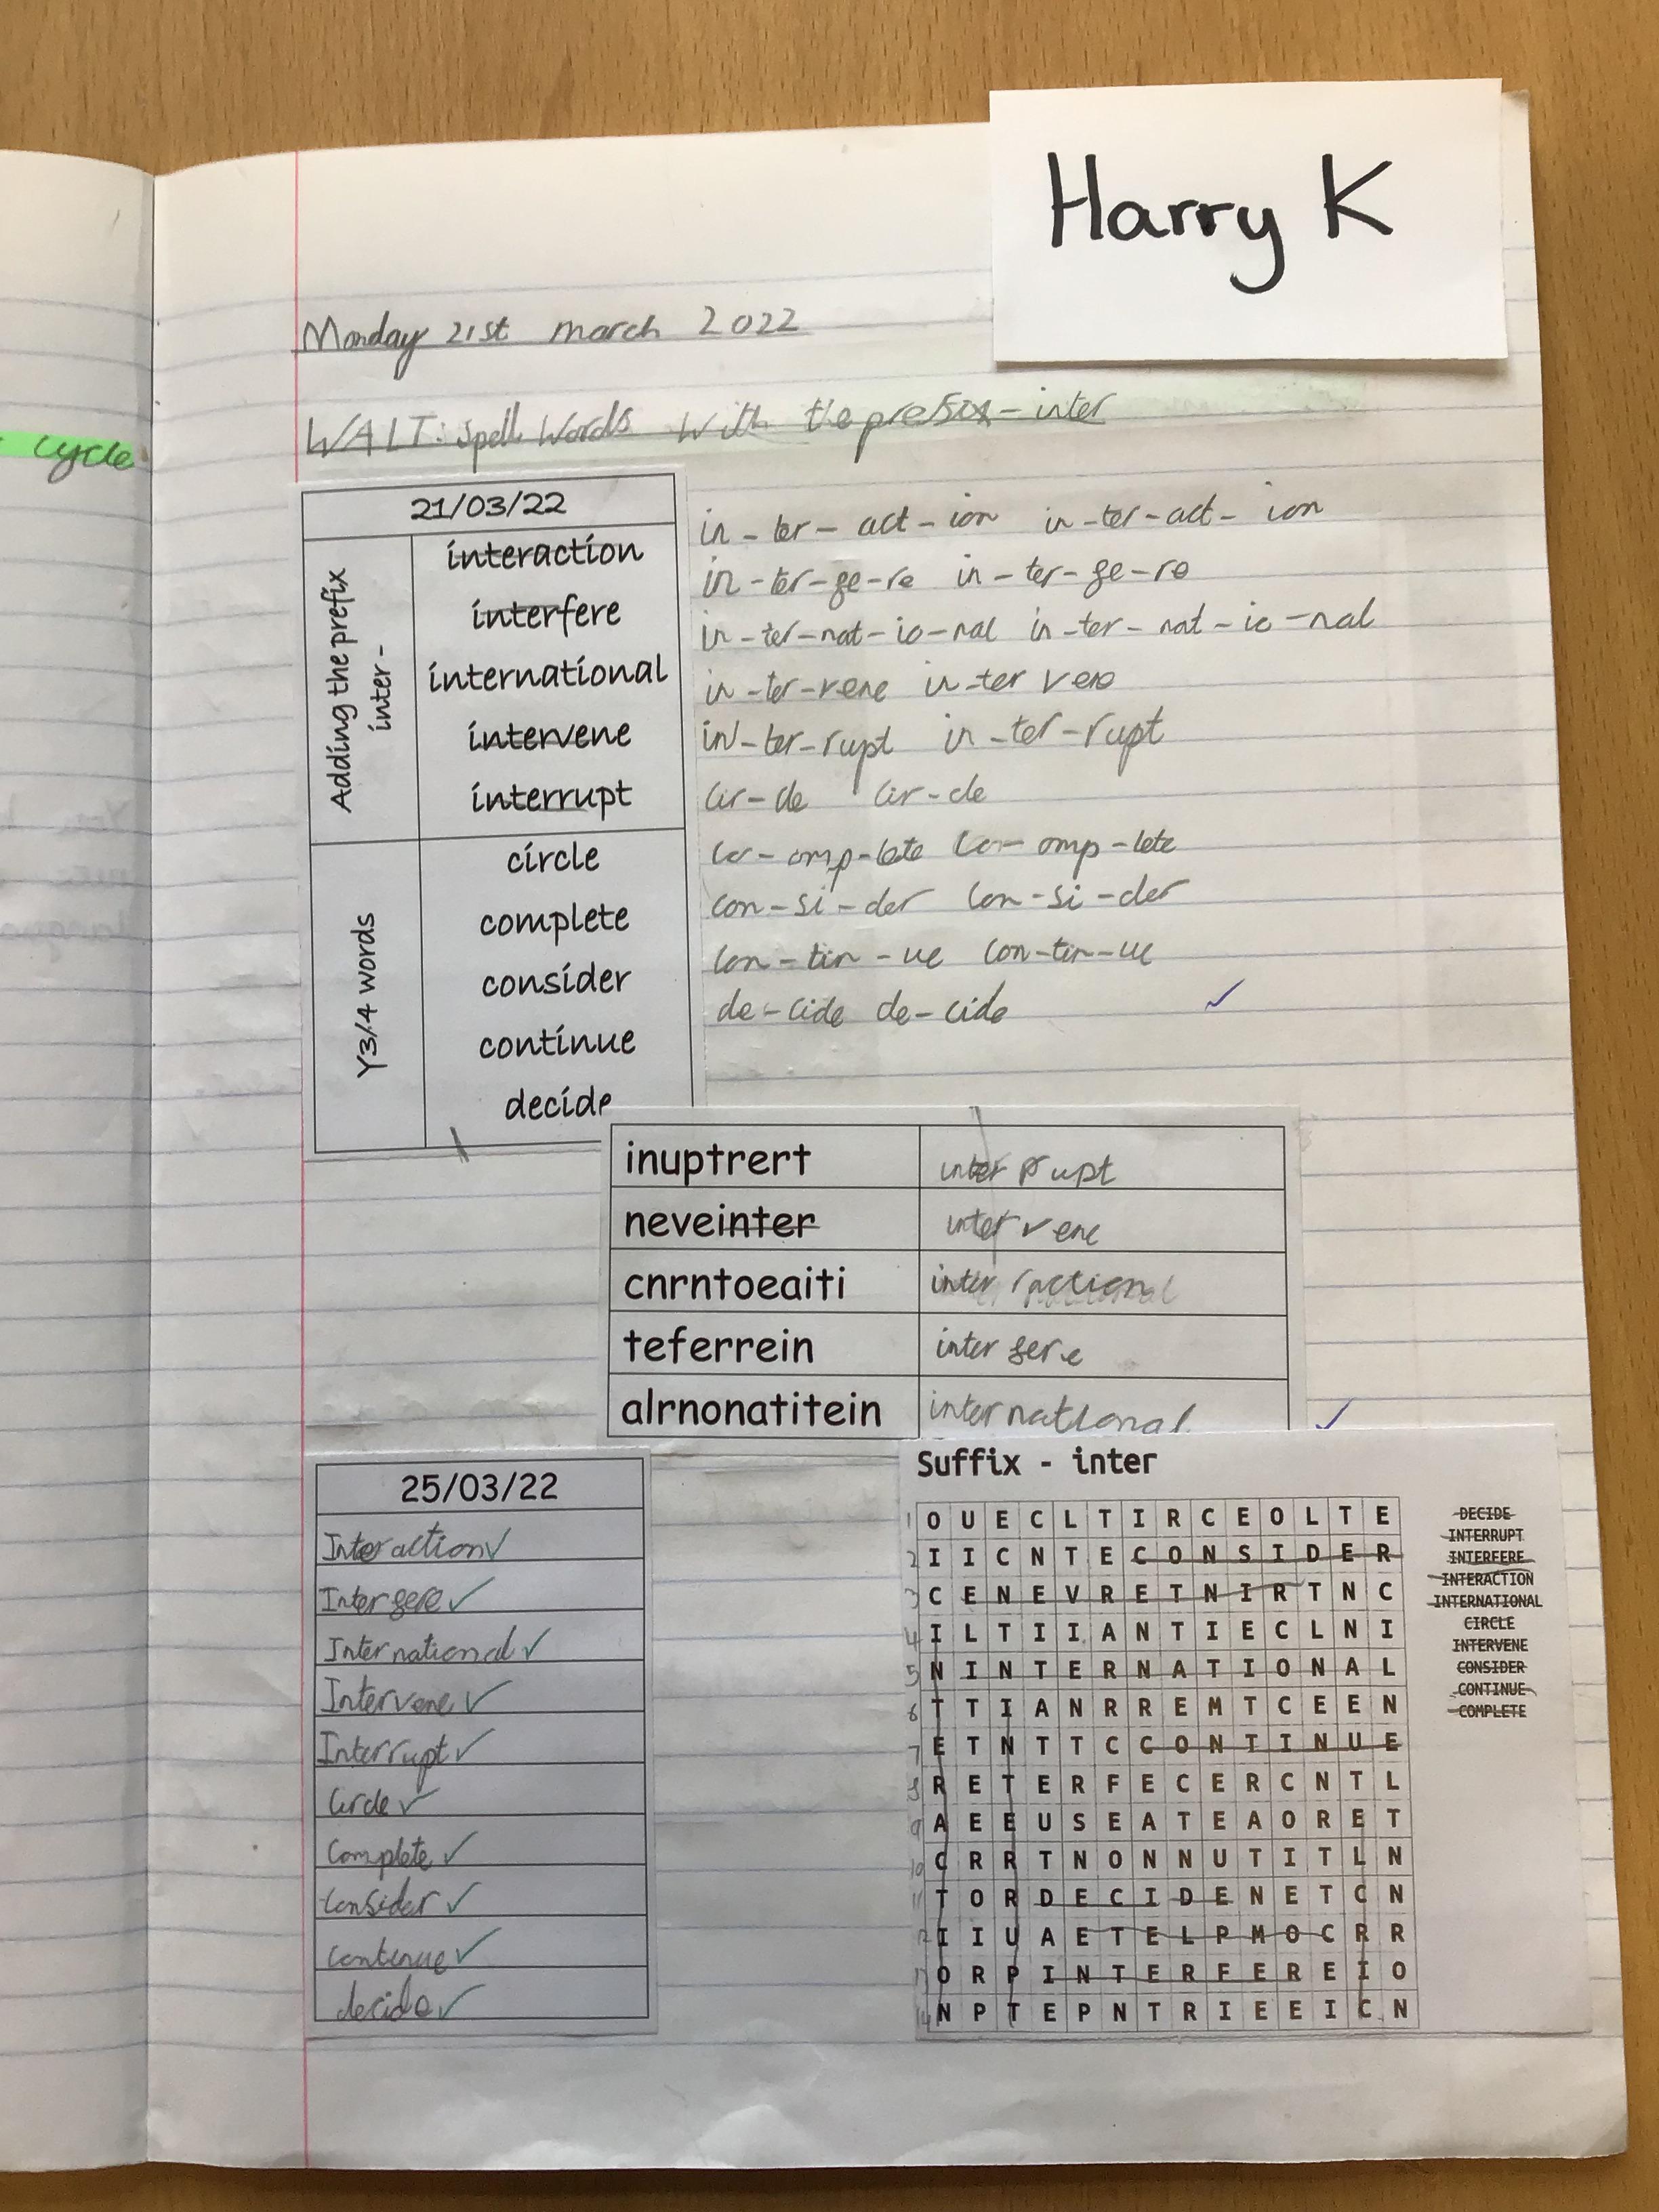 Harry K
Monday 21st march 2022
cycle
WALT: Spell Words with the prefix - inter
21/03/22
Adding the prefix inter -
interaction
interfere
international
intervene
interrupt
Y3/4 words
circle
complete
consider
continue
decide
in - ter - act - ion in - ter - act - ion
in - ter - fe - re in - ter - fe - re
in - ter - nat - io - nal in - ter - nat - io - nal
in - ter - vene in - ter vene
in - ter - rupt in - ter - rupt
cir - cle cir - cle
co - omp - lete co - omp - lete
con - si - der con - si - der
con - tin - ue con - tin - ue
de - cide de - cide
inuptrert interrupt
neveinter intervene
cnrntoeaiti
teferrein interfere
alrnonatitein international
25/03/22
Interaction
Interfere
International
Intervene
Interrupt
Circle
Complete
Consider
continue
decide
Suffix - inter
1 O U E C L T I R C E O L T E
2 I I C N T E C O N S I D E R
3 C E N E V R E T N I R T N C
4 I L T I I A N T I E C L N I
5 N I N T E R N A T I O N A L
6 T T I A N R R E M T C E E N
7 E T N T T C C O N T I N U E
8 R E T E R F E C E R C N T L
9 A E E U S E A T E A O R E T
10 C R R T N O N N U T I T L N
11 T O R D E C I D E N E T C N
12 I I U A E T E L P M O C R R
13 O R P I N T E R F E R E I O
14 N P T E P N T R I E E I C N
DECIDE
INTERRUPT
INTERFERE
INTERACTION
INTERNATIONAL
CIRCLE
INTERVENE
CONSIDER
CONTINUE
COMPLETE